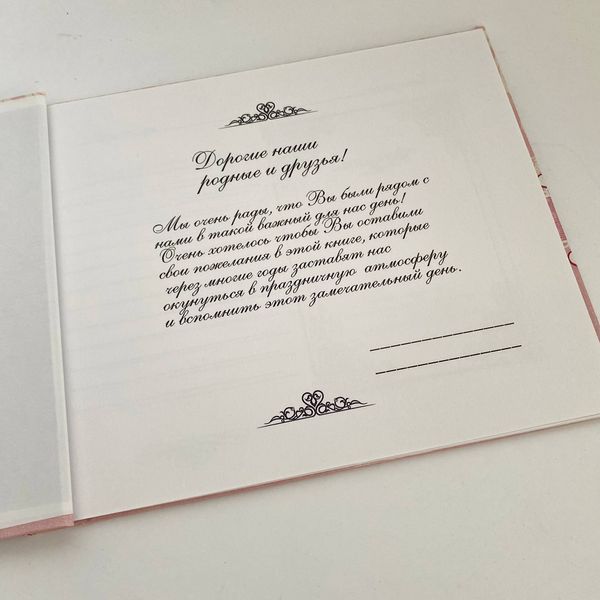 Дорогие наши
родные и друзья!
Мы очень рады, что Вы были рядом с
нами в такой важный для нас день!
Очень хотелось чтобы Вы оставили
свои пожелания в этой книге, которые
через многие годы заставят нас
окунуться в праздничную атмосферу
и вспомнить этот замечательный день.